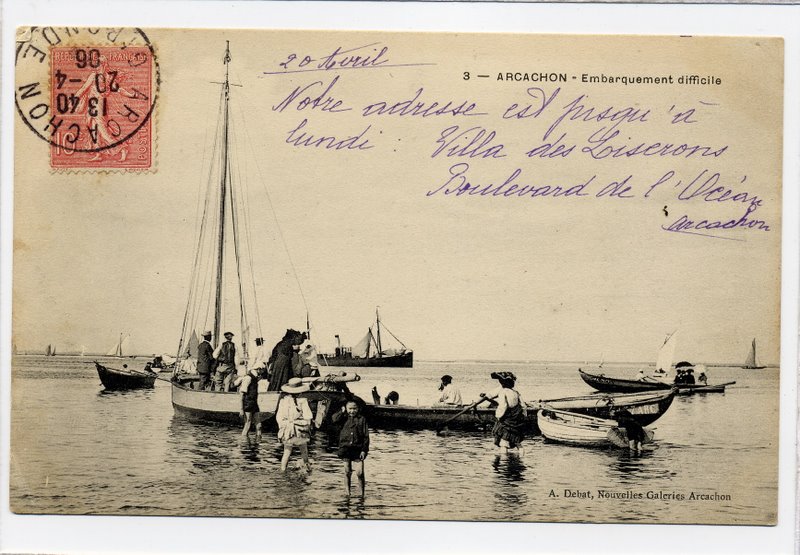 ARCACHON GIRONDE
13 40
20 -4
06
RÉPUBLIQUE FRANÇAISE
10
POSTES
20 Avril
3 — ARCACHON - Embarquement difficile
Notre adresse est jusqu'à
lundi : Villa des Liserons
Boulevard de l'Océan
Arcachon
A. Debat, Nouvelles Galeries Arcachon